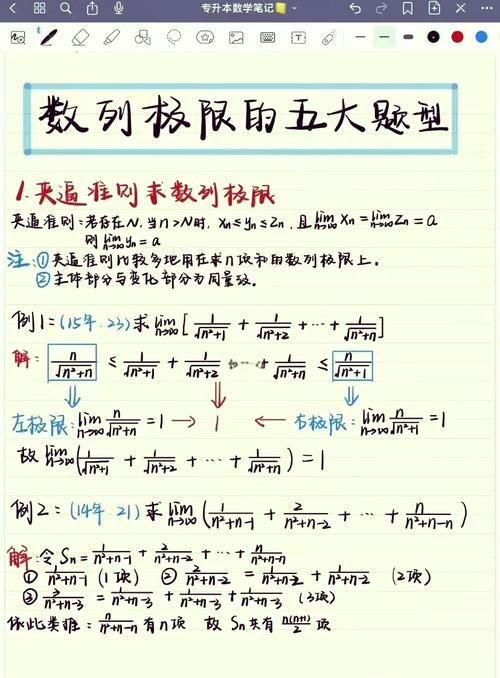 专升本数学笔记
数列极限的五大题型
1.夹逼准则求数列极限
夹逼准则:若存在N,当n>N时, xn≤yn≤zn,且lim n→∞ xn=lim n→∞ zn=a
则lim n→∞ yn=a
注:①夹逼准则比较多地用在求n项和的数列极限上。
②主体部分与变化部分为同量级。
例1:(15年.23)求lim n→∞ [1/√(n²+1) + 1/√(n²+2) + ··· + 1/√(n²+n)]
解: n/√(n²+n) ≤ 1/√(n²+1) + 1/√(n²+2) + ··· + 1/√(n²+n) ≤ n/√(n²+1)
左极限:lim n→∞ n/√(n²+n) =1 → 1 ← 右极限:lim n→∞ n/√(n²+1) =1
故 lim n→∞ (1/√(n²+1) + 1/√(n²+2) + ··· + 1/√(n²+n)) =1
例2:(14年.21)求lim n→∞ (1/(n²+n-1) + 2/(n²+n-2) + ··· + n/(n²+n-n))
解:令Sn=1/(n²+n-1) + 2/(n²+n-2) + ··· + n/(n²+n-n)
① 1/(n²+n-1) (1项) ② 2/(n²+n-2) = 1/(n²+n-2) + 1/(n²+n-2) (2项)
③ 3/(n²+n-3) = 1/(n²+n-3) + 1/(n²+n-3) + 1/(n²+n-3) (3项)
依此类推: n/(n²+n-n) 有n项 故Sn共有 n(n+1)/2 项